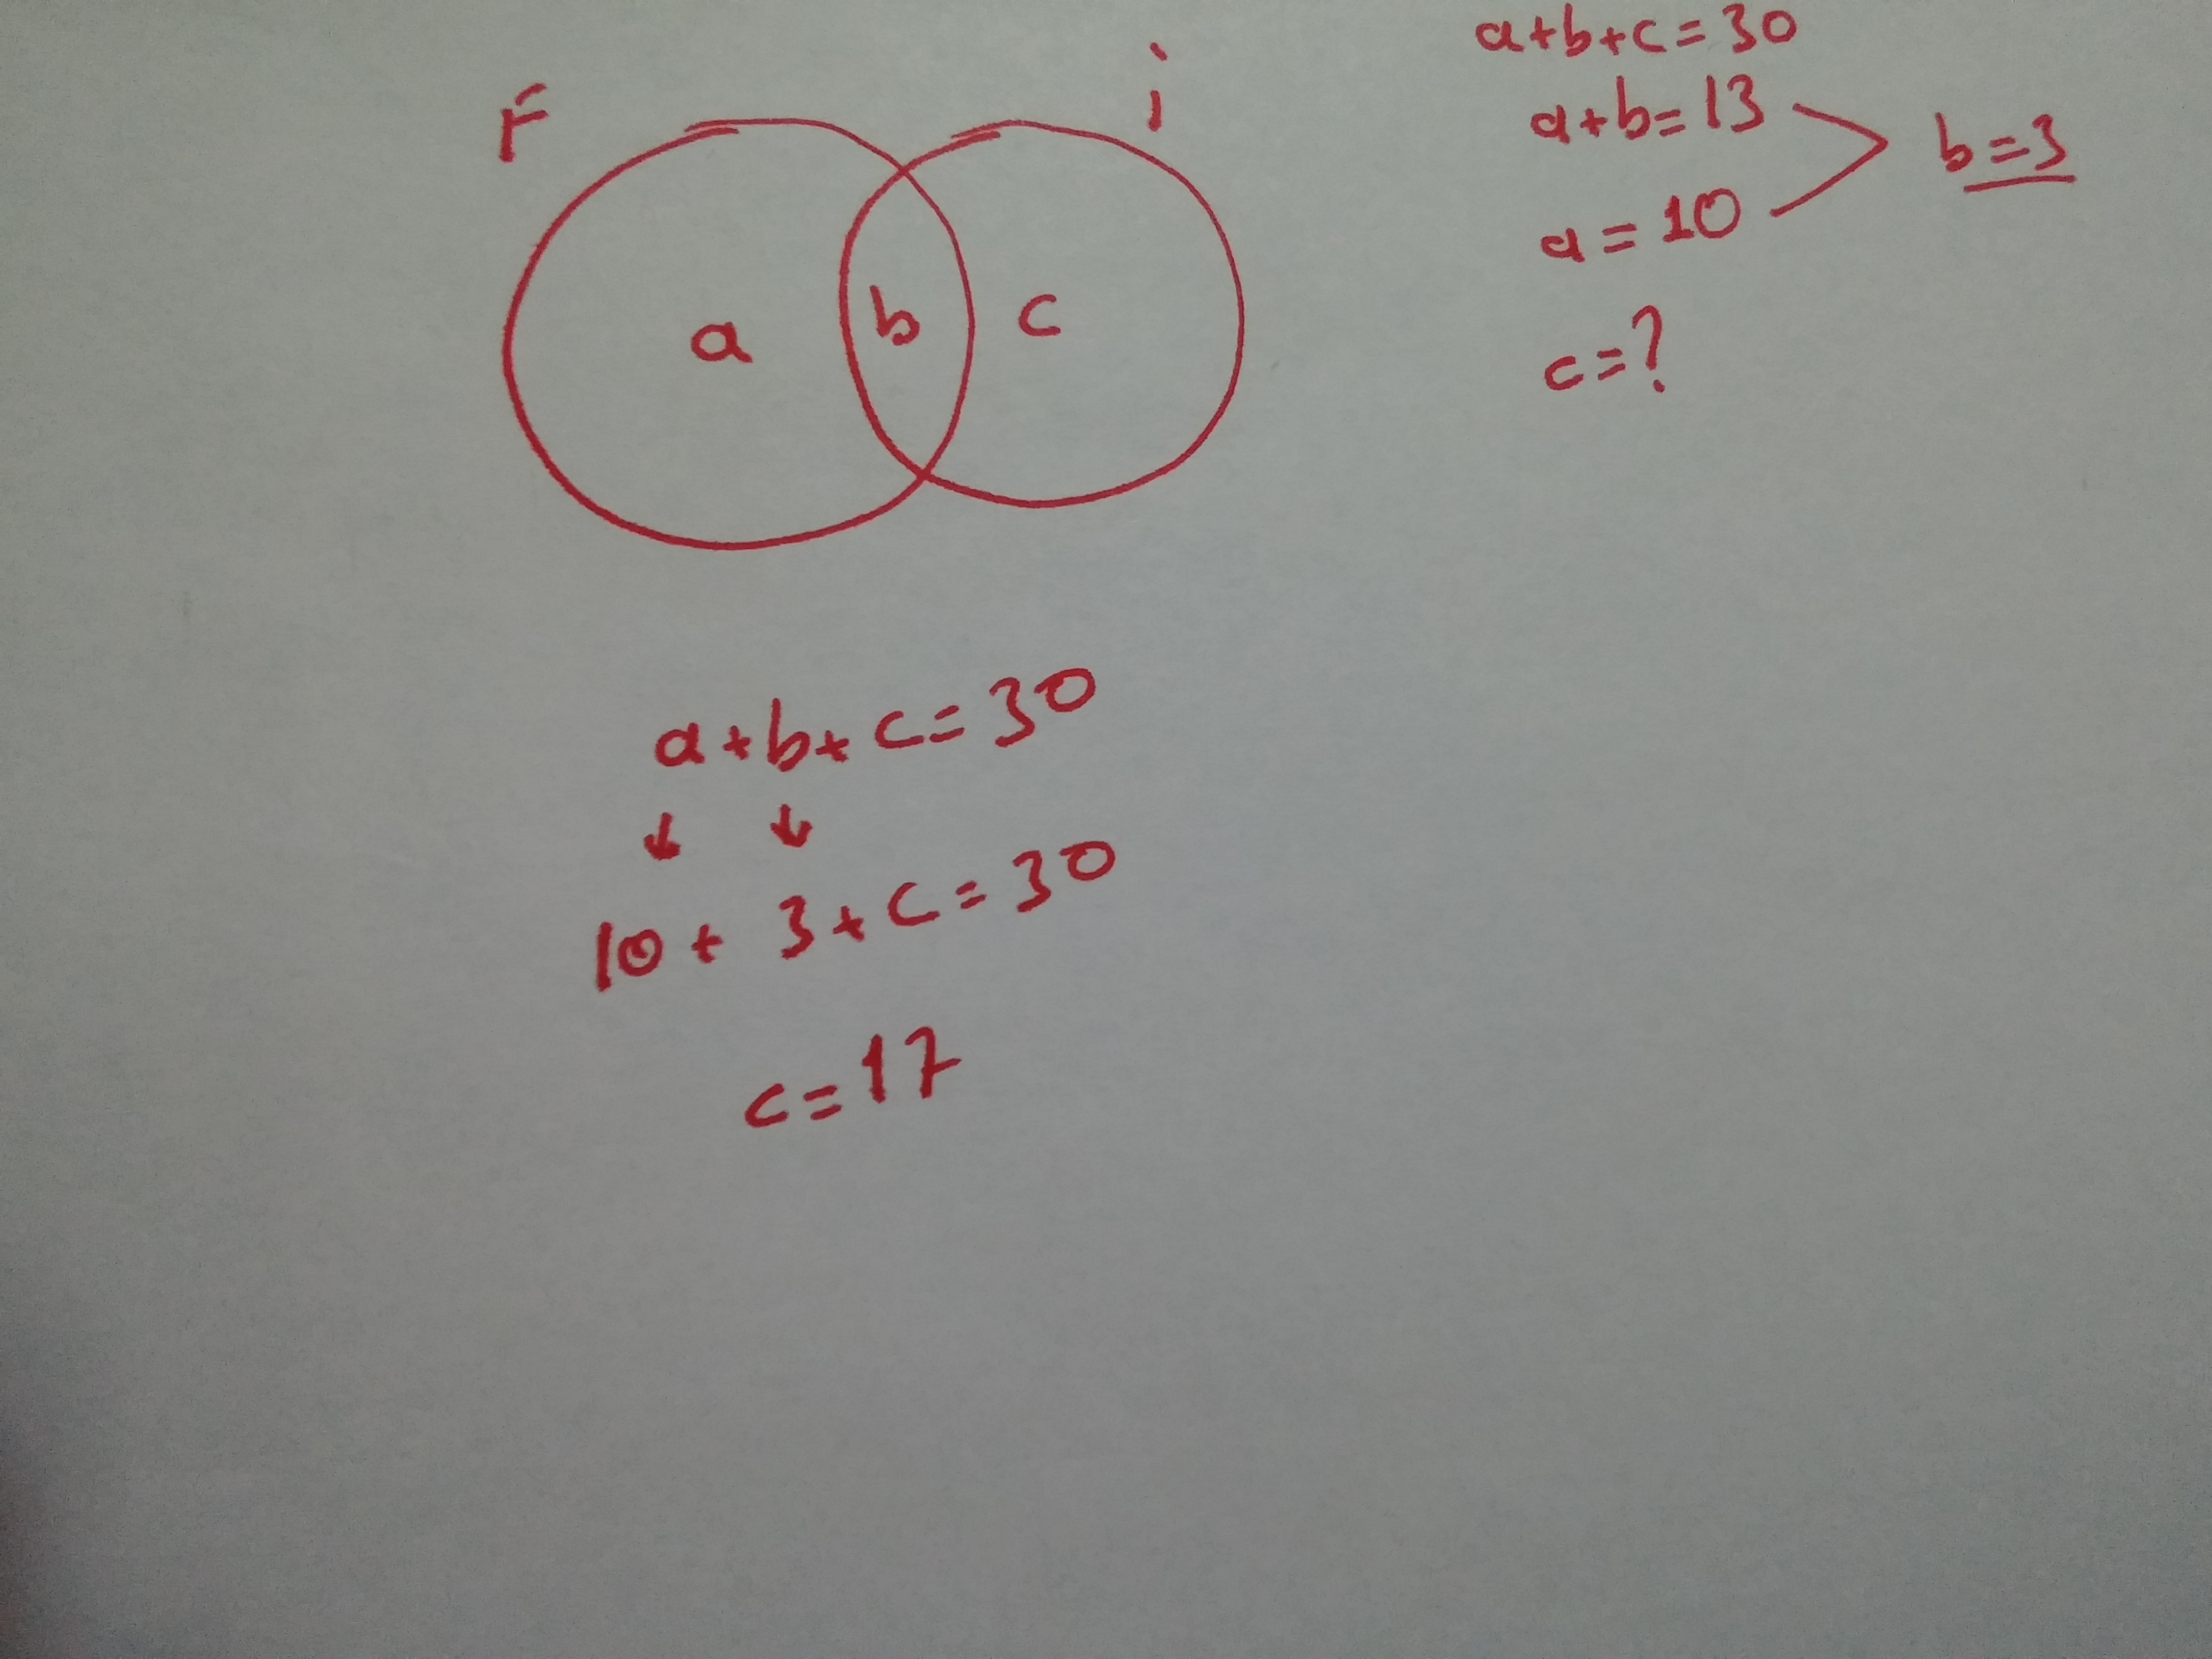 F
i
a b c
a+b+c=30
a+b=13
a=10
b=3
c=?
a+b+c=30
↓ ↓
10+3+c=30
c=17